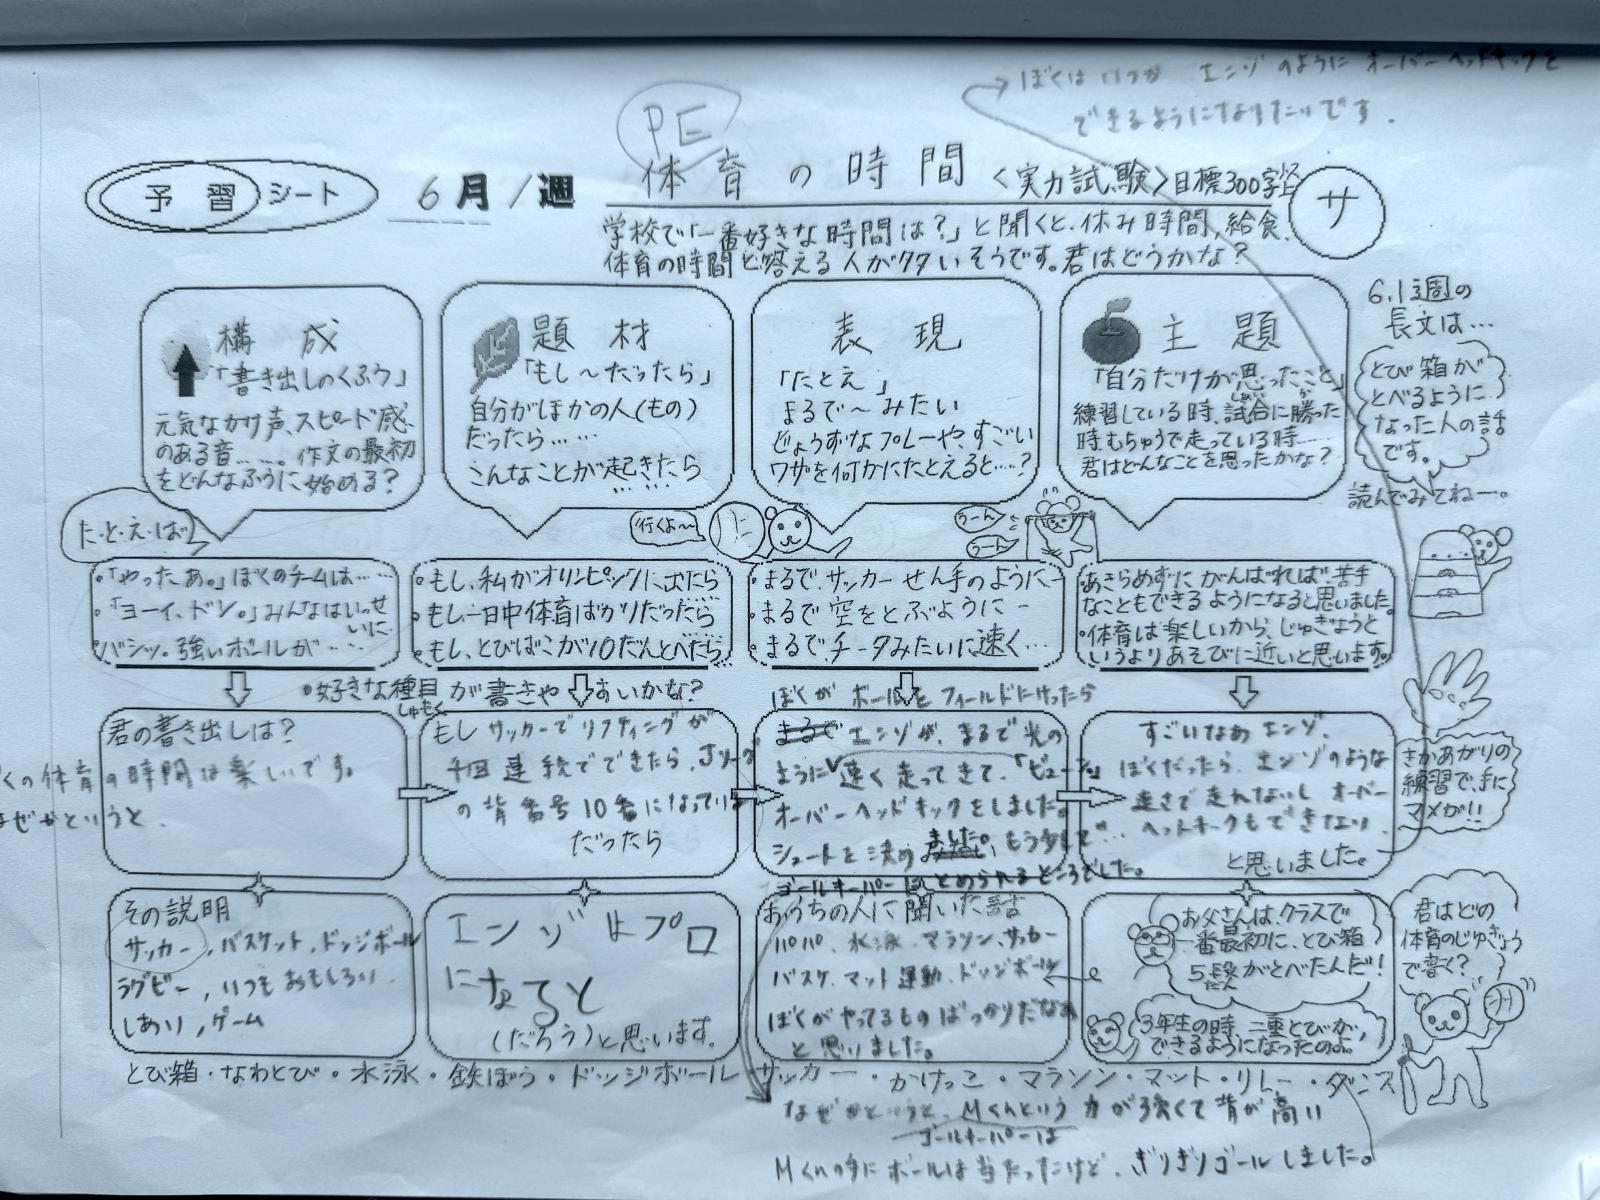 ぼくは いつか エンゾ のように オーバーヘッドキックを
できるようになりたいです.
PE
予習シート 6月1週 体育の時間 <実力試験>目標300字
サ
学校で「一番好きな時間は?」と聞くと、休み時間、給食、
体育の時間と答える人が多いそうです。君はどうかな?
構成
「書き出しのくふう」
元気なかけ声、スピード感
のある音……。作文の最初
をどんなふうに始める?
題材
「もし〜だったら」
自分がほかの人(もの)
だったら……
こんなことが起きたら
……
表現
「たとえ」
まるで〜みたい
じょうずなプレーや、すごい
ワザを何かにたとえると…?
主題
「自分だけが思ったこと」
練習している時、試合に勝った
時、もちゅうで走っている時……
君はどんなことを思ったかな?
6.1週の
長文は…
とび箱が
とべるように
なった人の話
です。
読んでみてねー。
た・と・え・ば
行くよ〜
うーん
うーん
・「やったあ。」ぼくのチームは……
・「ヨーイ、ドン。」みんなはいっせ
いに…
・バシッ。強いボールが……
・もし、私がオリンピックに出たら
・もし一日中体育ばかりだったら
・もし、とびばこが10だんとべたら
・まるで、サッカーせん手のように…
・まるで空をとぶように…
・まるで、チータみたいに速く…
・あきらめずにがんばれば、苦手
なこともできるようになると思いました。
・体育は楽しいから、じゅぎょうと
いうよりあそびに近いと思います。
・好きな種目が書きやすいかな?
しゅもく
君の書き出しは?
くの体育の時間は楽しいです。
ぜかというと.
もしサッカーでリフティングが
千回連続でできたら、Jリーグ
の背番号10番になっていた
だったら
ぼくがボールをフィールドにけったら
エンゾが、まるで光の
ように速く走ってきて、「ビューン」
オーバーヘッドキックをしました。
シュートを決め ました。もう少しで…
ゴールキーパーにとめられるところでした。
すごいなあエンゾ.
ぼくだったら、エンゾのような
速さで走れないし オーバー
ヘッドキークもできてない
と思いました。
さかあがりの
練習で、手に
マメが!!
その説明
サッカー, バスケット, ドッジボール
ラグビー, いつもおもしろい
しあい, ゲーム
エンゾはプロ
になると
(だろう)と思います。
おうちの人に聞いた話
パパ、水泳、マラソン、サッカー
バスケ、マット運動、ドッジボール
ぼくがやってるものばっかりだなあ
と思いました。
お父さんは、クラスで
一番最初に、とび箱
5段がとべたんだ!
だん
3年生の時、二重とびが
できるようになったのよ。
君はどの
体育のじゅぎょう
で書く?
とび箱・なわとび・水泳・鉄ぼう・ドッジボール サッカー・かけっこ・マラソン・マット・リレー・ダンス
なぜかというと、Mくんという 力が強くて背が高い
ゴールキーパーは
Mくんの手にボールは当たったけど、ぎりぎりゴールしました。